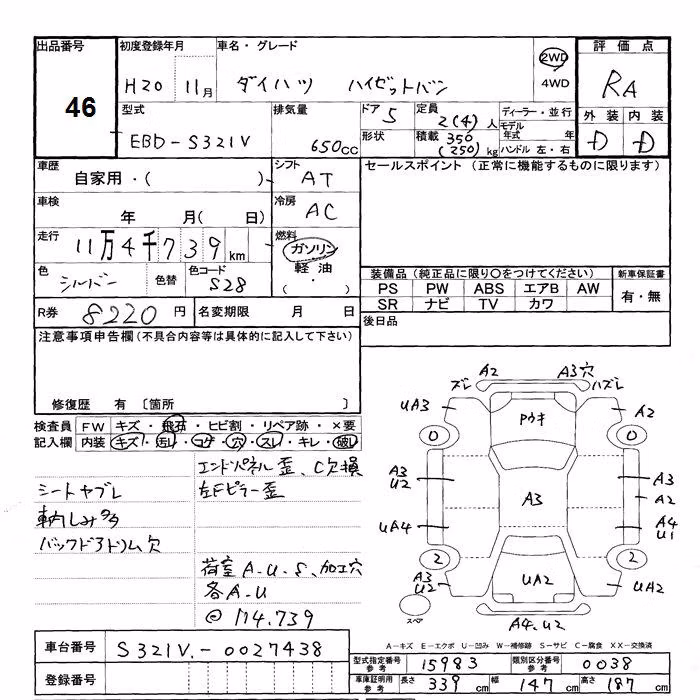 出品番号
46
初度登録年月
H20 11月
車名・グレード
ダイハツ ハイゼットバン
2WD
4WD
評価点
RA
外装 内装
D D
型式
EBD-S321V
排気量
650cc
ドア 5
形状
定員 2(4)人
積載 350 (250) kg
ディーラー・並行
モデル年式 年
ハンドル 左・右
車歴
自家用・( )
シフト
AT
セールスポイント (正常に機能するものに限ります)
車検
年 月( 日)
冷房
AC
走行
11万4千739km
燃料
ガソリン
軽油
( ・ )
色
シルバー
色替
色コード
S28
装備品 (純正品に限り○をつけてください)
新車保証書
PS PW ABS エアB AW
SR ナビ TV カワ
有・無
R券 8220円
名変期限 月 日
後日品
注意事項申告欄 (不具合内容等は具体的に記入して下さい)
修復歴 有 〔箇所 〕
検査員記入欄
FW キズ・飛石・ヒビ割・リペア跡・×要
内装 キズ・汚レ・コゲ・穴・スレ・キレ・破レ
エンドパネル歪、C欠損
シートヤブレ
左Fピラー歪
車内しみ多
バックドアドリム欠
荷室A-U-S、加工穴
各A-U
@114.739
A2 A3穴
ズレ ハズレ
UA3 Pウキ A2
0 0
A3 U2 A3 A3
A2
UA4 A4 U1
2 2
A3 U2 UA2 UA2
スペア
A4.U2
A-キズ E-エクボ U-凹み W-補修跡 S-サビ C-腐食 XX-交換済
車台番号 S321V.-0027438
登録番号
型式指定番号 参考 15983
類別区分番号 参考 0038
車庫証明用 参考 長さ 339cm 幅 147cm 高さ 187cm